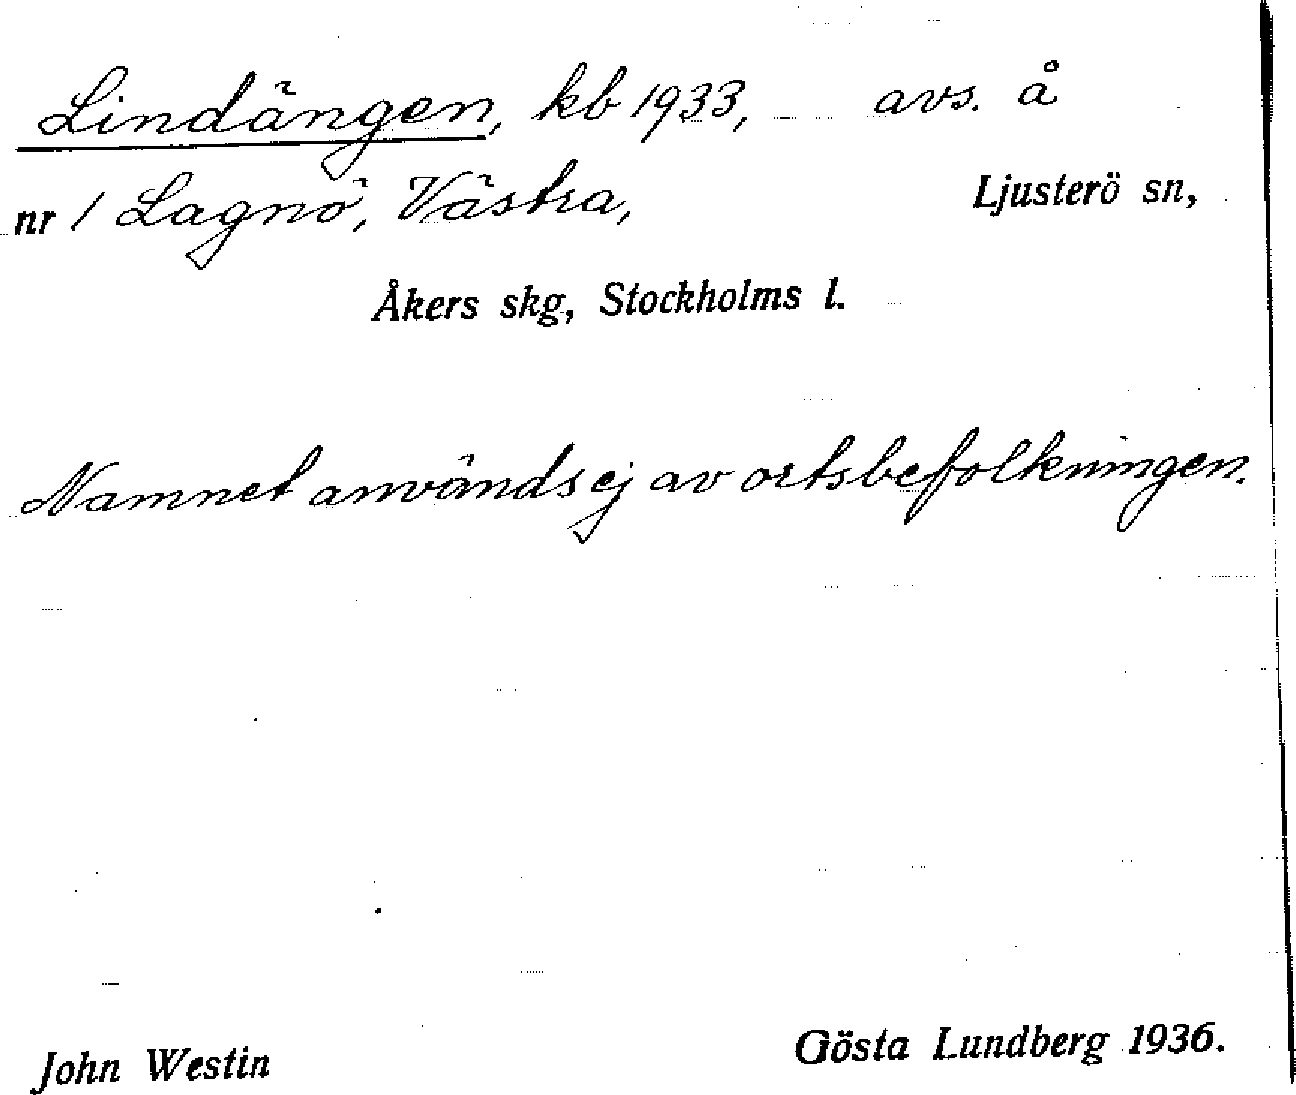 Lindängen, kb 1933, avs. å
nr 1 Lagnö, Västra, Ljusterö sn,
Åkers skg, Stockholms l.
Namnet används ej av ortsbefolkningen.
John Westin Gösta Lundberg 1936.